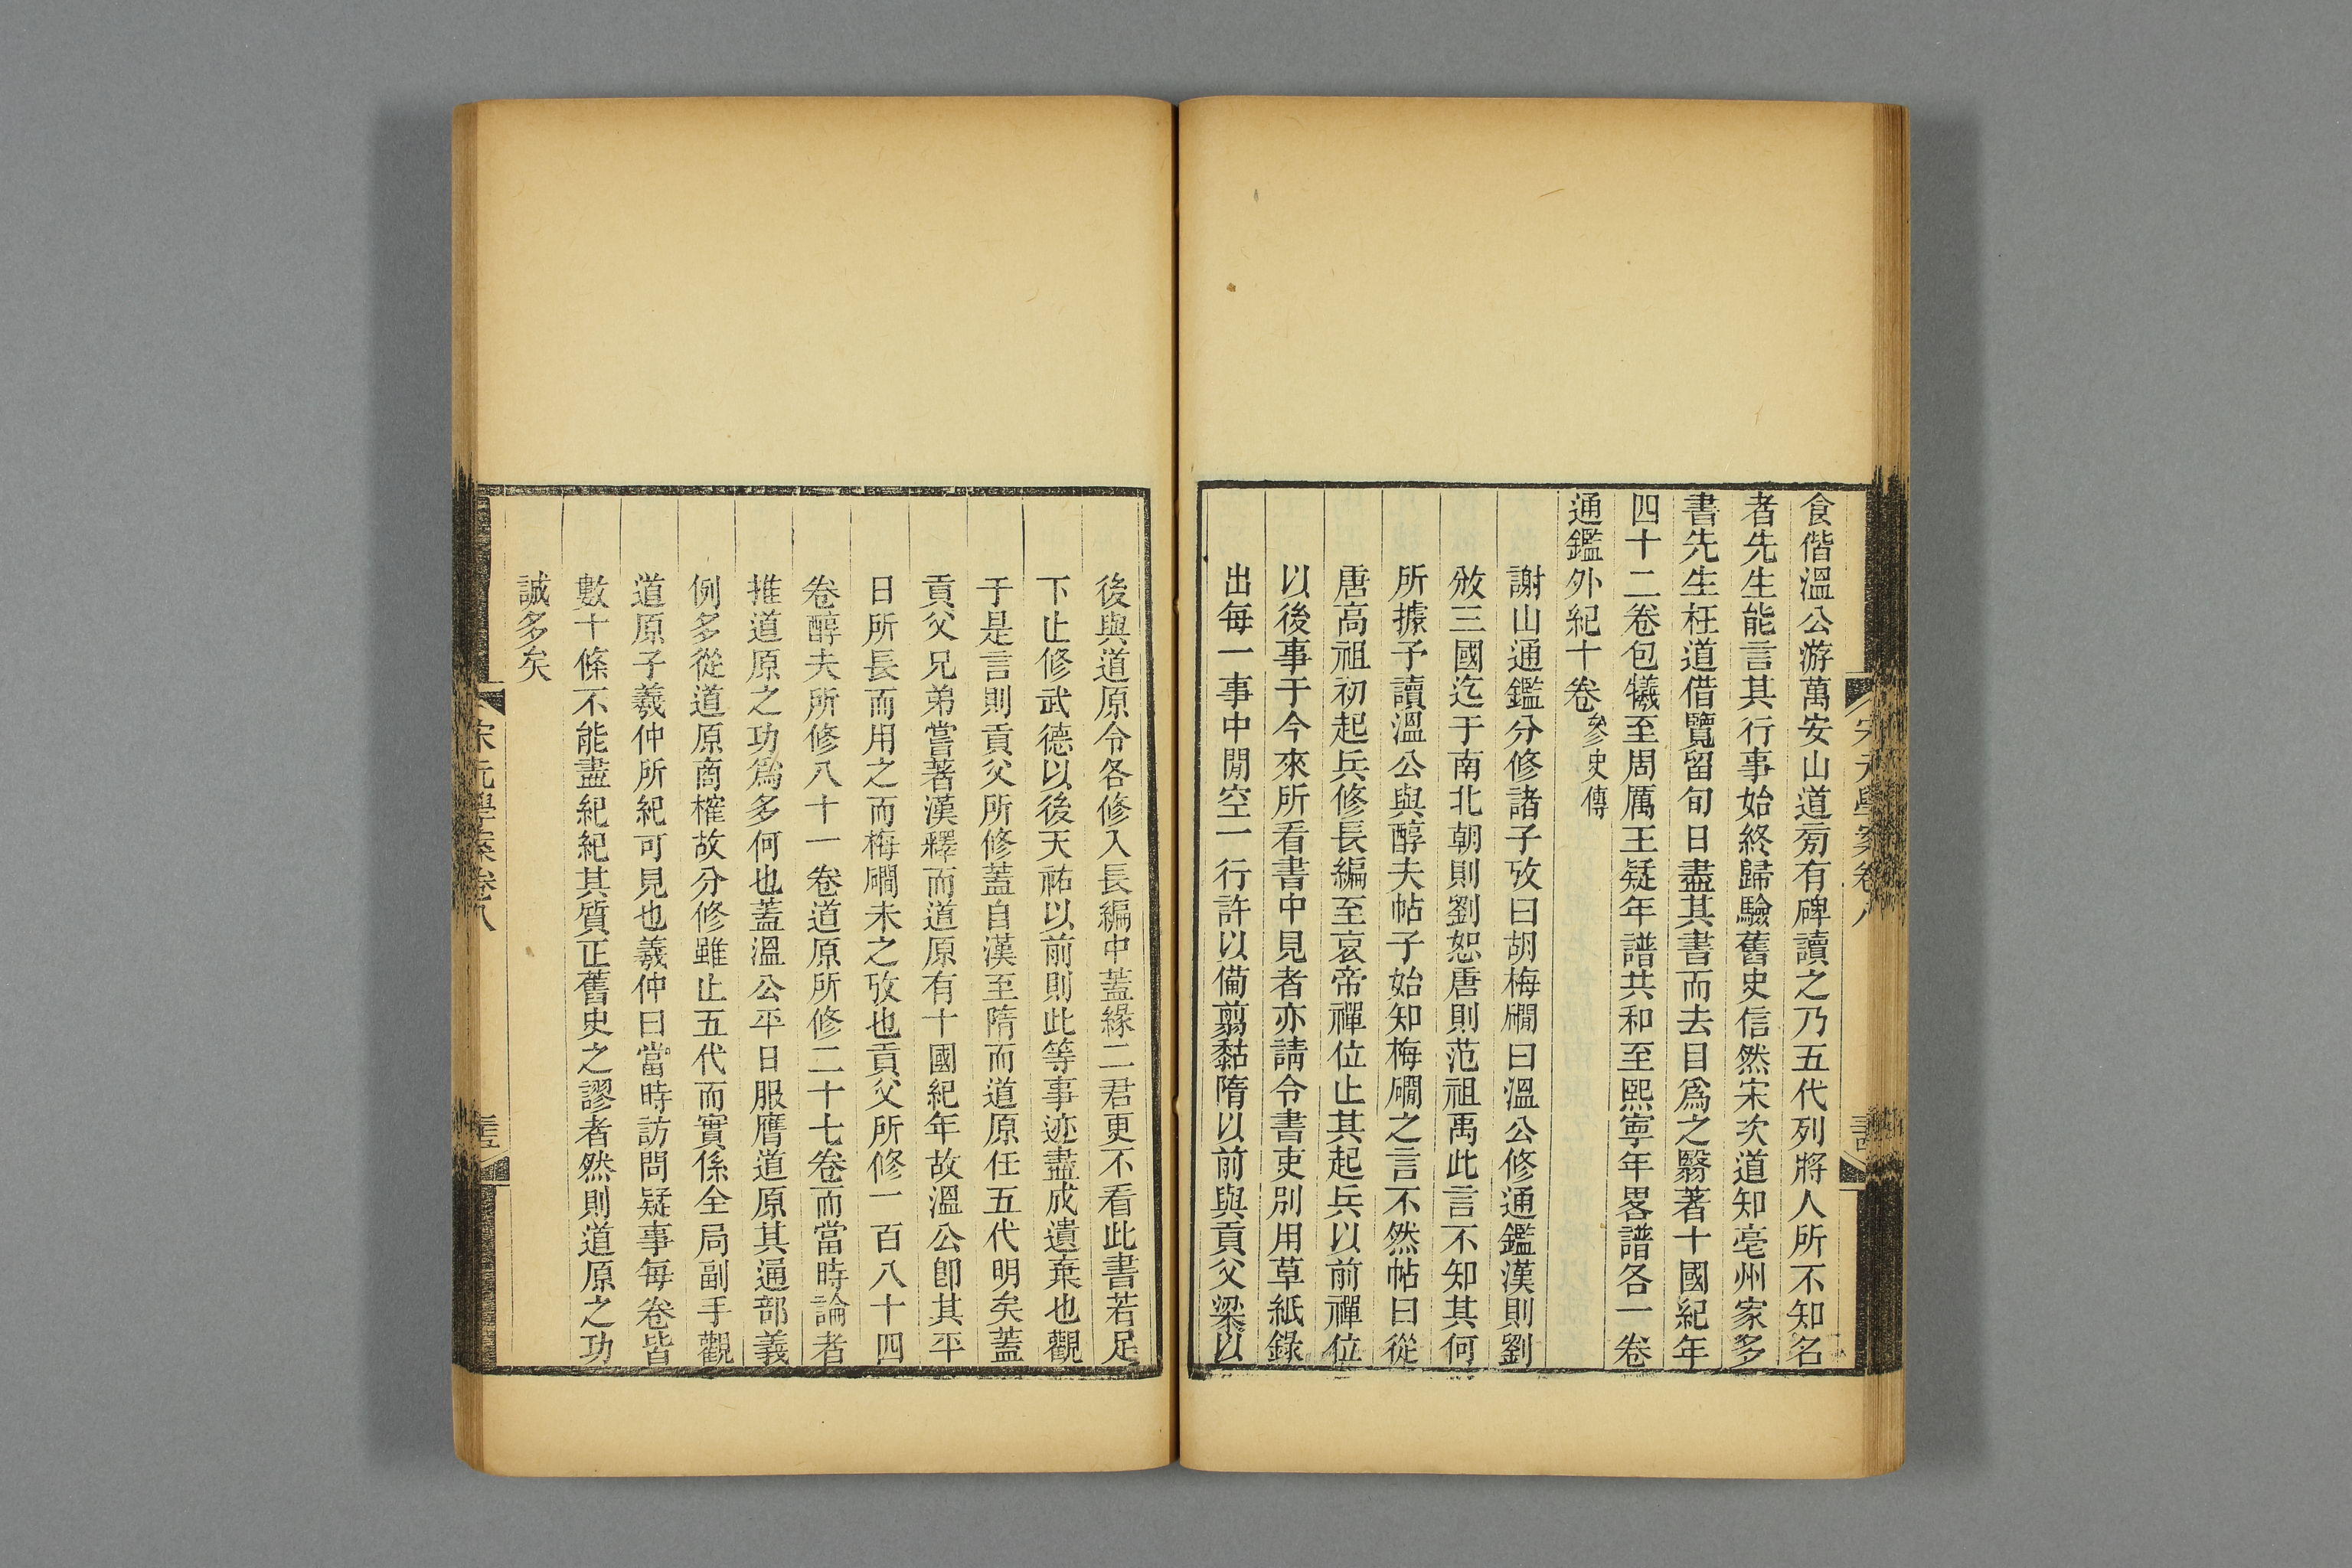 食偕溫公游萬安山道旁有碑讀之乃五代列將人所不知名
者先生能言其行事始終歸驗舊史信然宋次道知亳州家多
書先生枉道借覽留旬日盡其書而去目爲之翳著十國紀年
四十二卷包犧至周厲王疑年譜共和至熙寧年畧譜各一卷
通鑑外紀十卷參史傳
謝山通鑑分修諸子攷曰胡梅磵曰溫公修通鑑漢則劉
攽三國迄于南北朝則劉恕唐則范祖禹此言不知其何
所據予讀溫公與醇夫帖子始知梅磵之言不然帖曰從
唐高祖初起兵修長編至哀帝禪位止其起兵以前禪位
以後事于今來所看書中見者亦請令書吏別用草紙錄
出每一事中閒空一行許以備翦黏隋以前與貢父梁以
後與道原令各修入長編中蓋緣二君更不看此書若足
下止修武德以後天祐以前則此等事迹盡成遺棄也觀
于是言則貢父所修蓋自漢至隋而道原任五代明矣蓋
貢父兄弟嘗著漢釋而道原有十國紀年故溫公卽其平
日所長而用之而梅磵未之攷也貢父所修一百八十四
卷醇夫所修八十一卷道原所修二十七卷而當時論者
推道原之功爲多何也蓋溫公平日服膺道原其通部義
例多從道原商榷故分修雖止五代而實係全局副手觀
道原子羲仲所紀可見也羲仲曰當時訪問疑事每卷皆
數十條不能盡紀紀其質正舊史之謬者然則道原之功
誠多矣
宋元學案卷八